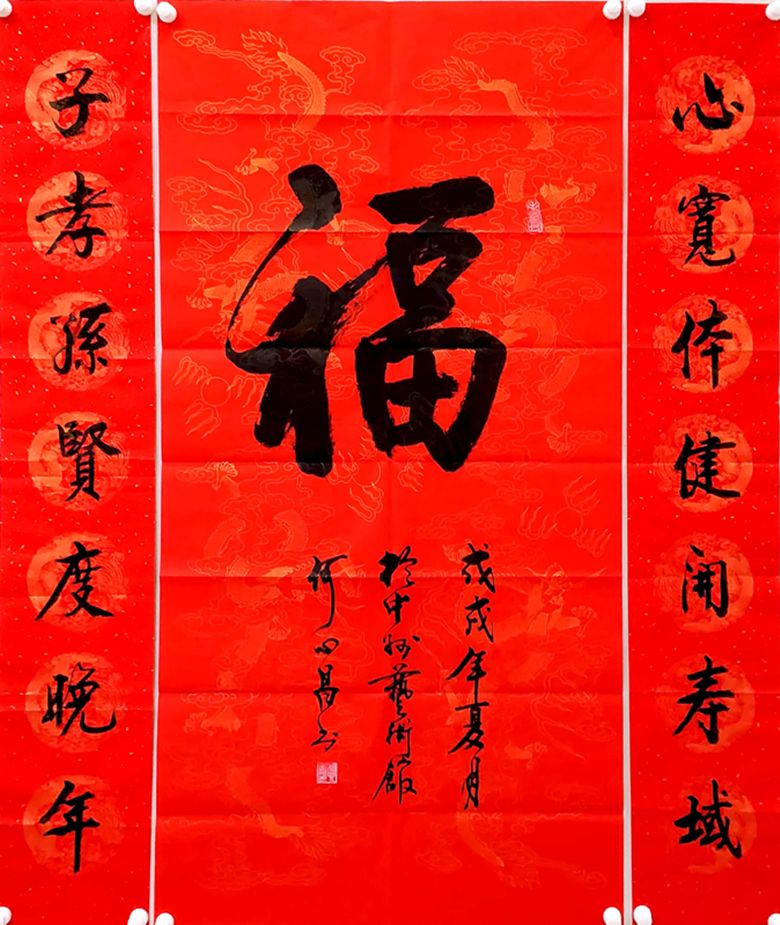 心寬体健開寿域
福
戊戌年夏月
於中州藝術館
何心昌书
子孝孫賢度晚年